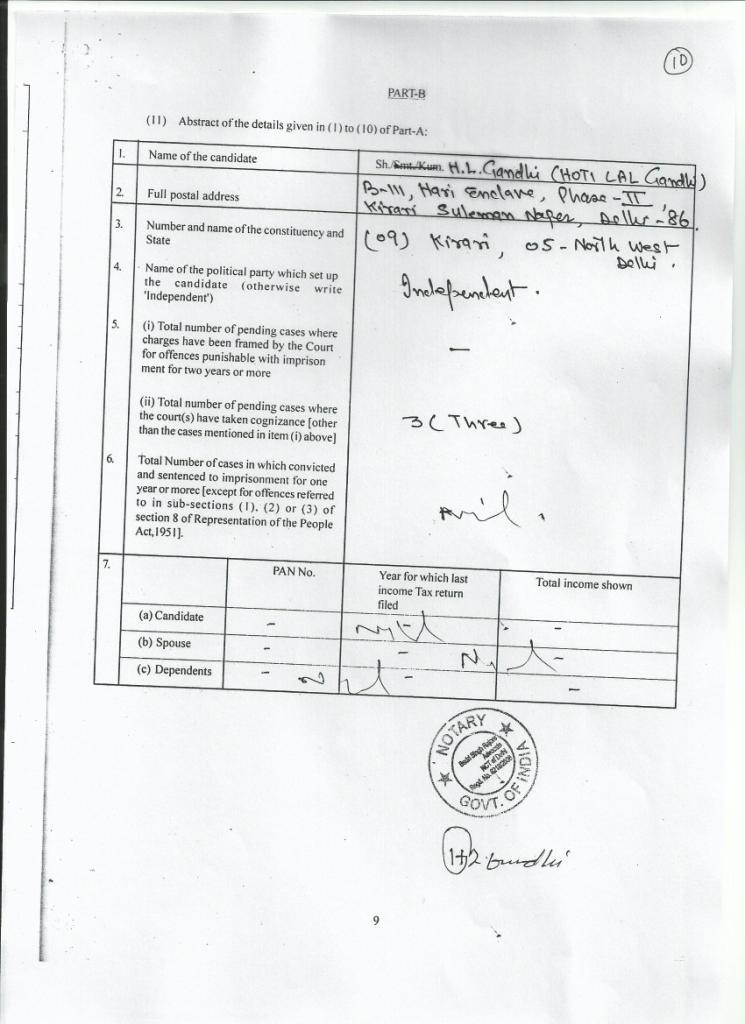 10
PART-B
(11) Abstract of the details given in (1) to (10) of Part-A:
1. Name of the candidate Sh./Smt./Kum. H.L. Gandhi (HOTI LAL Gandhi)
2. Full postal address B-111, Hari Enclave, Phase-II,
Kirari Suleman Nager, Delhi-86.
3. Number and name of the constituency and
State
(09) Kirari, 05-North West
Delhi.
4. Name of the political party which set up
the candidate (otherwise write
'Independent')
Independent.
5. (i) Total number of pending cases where
charges have been framed by the Court
for offences punishable with imprison
ment for two years or more
-
(ii) Total number of pending cases where
the court(s) have taken cognizance [other
than the cases mentioned in item (i) above]
3 (Three)
6. Total Number of cases in which convicted
and sentenced to imprisonment for one
year or morec [except for offences referred
to in sub-sections (1). (2) or (3) of
section 8 of Representation of the People
Act,1951].
Nil.
7. PAN No. Year for which last
income Tax return
filed
Total income shown
(a) Candidate - Nil -
(b) Spouse - - Nil -
(c) Dependents - Nil - -
NOTARY
Advocate
NCT of Delhi
GOVT. OF INDIA
Gandhi
9